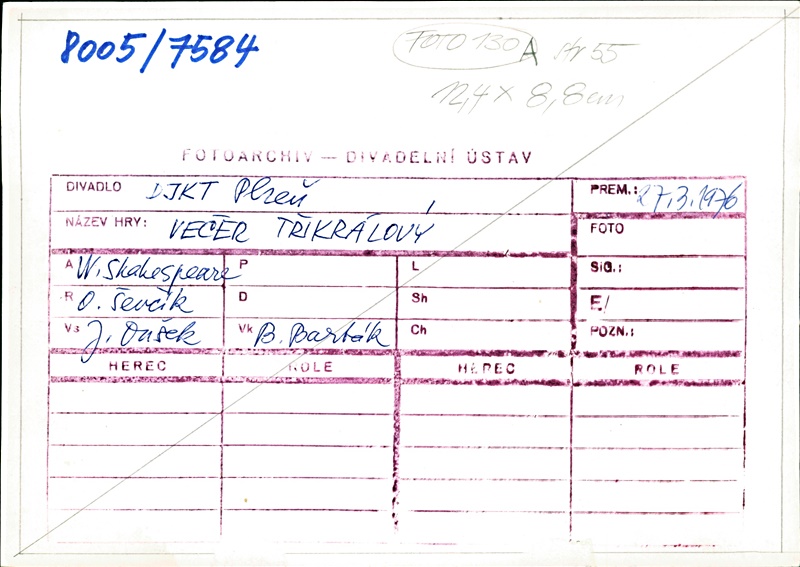 8005/7584
FOTO 130 A str 55
12,4 x 8,8 cm
FOTOARCHIV — DIVADELNÍ ÚSTAV
DIVADLO DJKT Plzeň, PREM.: 27.3.1976
NÁZEV HRY: VEČER TŘIKRÁLOVÝ FOTO
A W. Shakespeare P L SIG.:
R O. Ševčík D Sh E/
Vs J. Dušek Vk B. Barták Ch POZN.:
HEREC ROLE HEREC ROLE